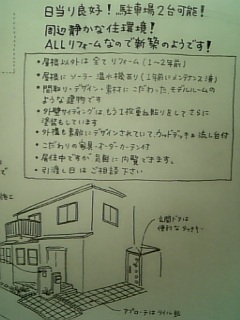 日当り良好！、駐車場２台可能！
周辺静かな住環境！
ALLリフォームなので新築のようです！
・屋根以外は全てリフォーム（1〜2年前）
・屋根にソーラー温水機あり（1年前にメンテナンス済）
・間取り・デザイン・素材にこだわったモデルルームの
ような建物です
・外壁サイディングはもう１枚重ね貼りをしてさらに
塗装もしています
・外構も素敵にデザインされていて、ウッドデッキ＆流し台付
・こだわりの家具・オーダーカーテン付
・居住中ですが気軽に内覧できます。
・引渡し日はご相談下さい
玄関ドアは
便利なタッチキー
アプローチはタイル貼